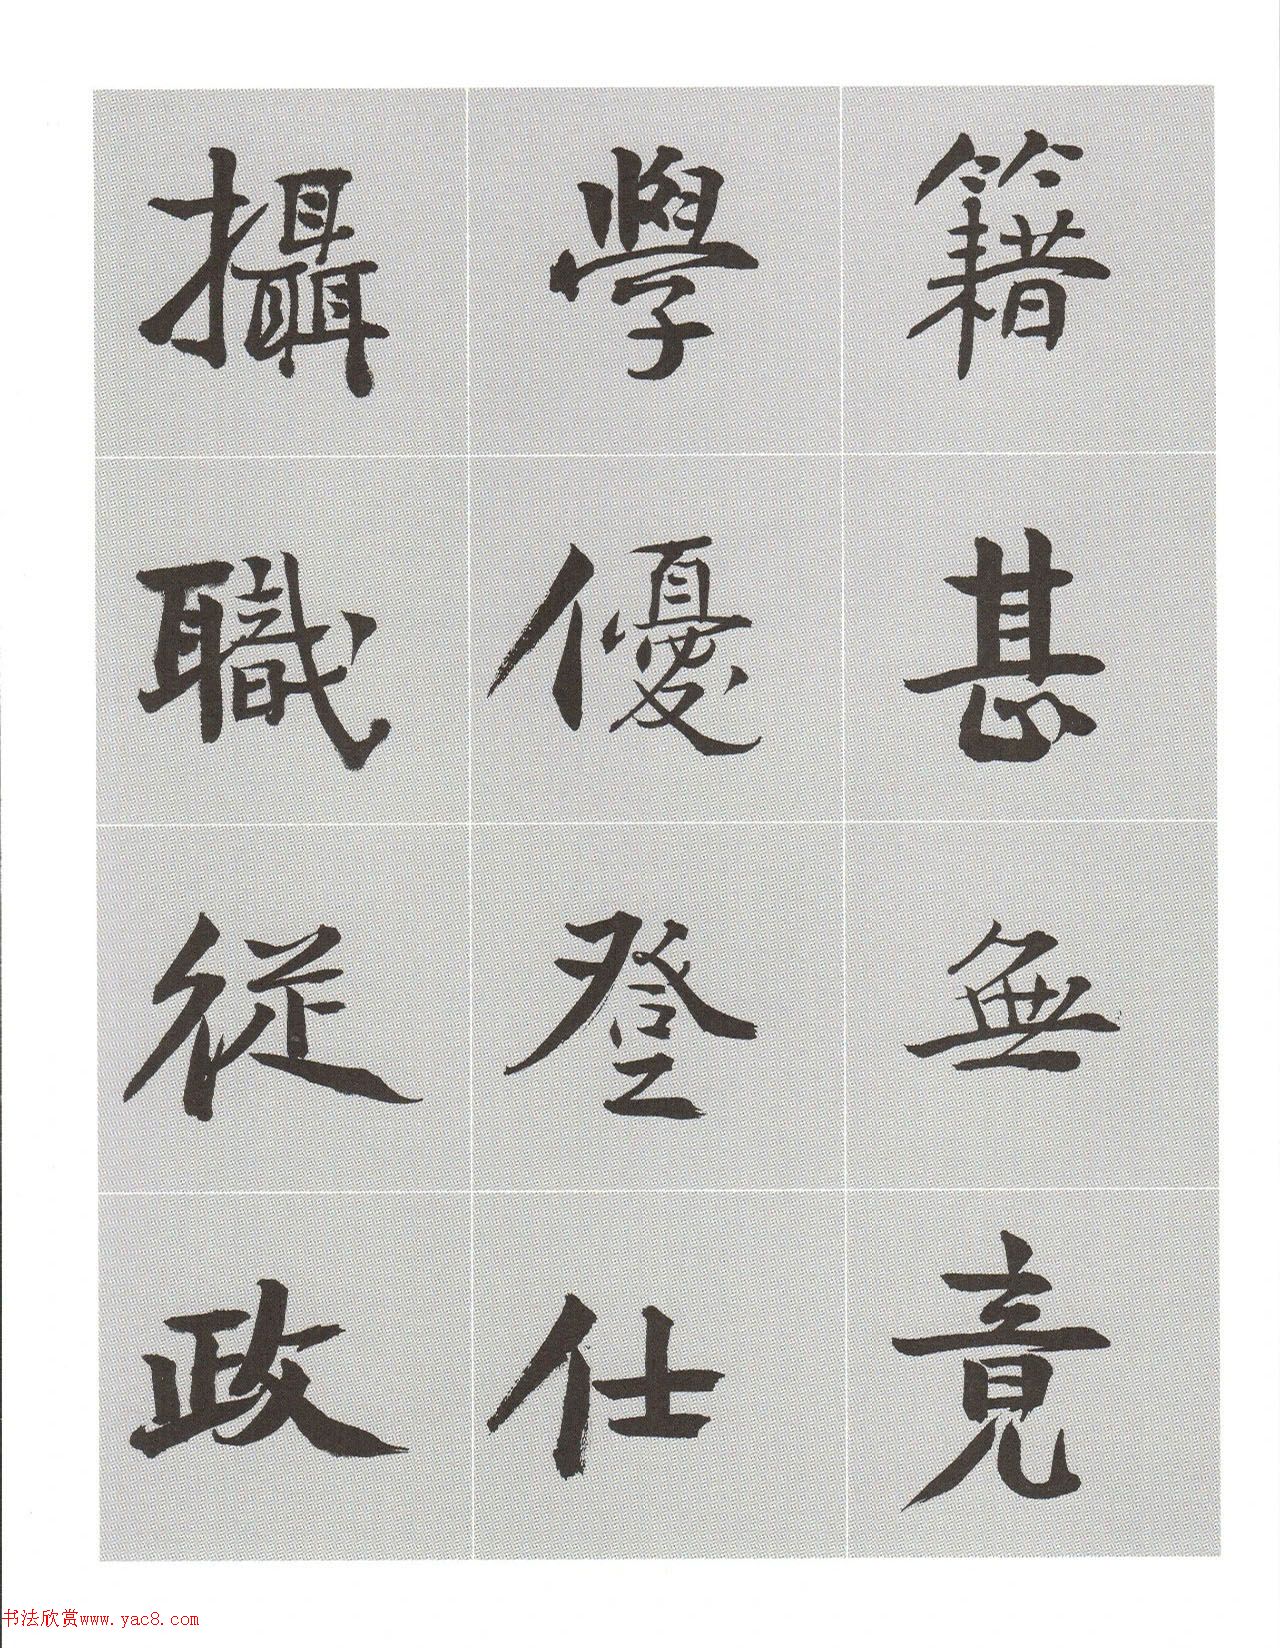 籍甚無竟
學優登仕
攝職從政
书法欣赏www.yac8.com